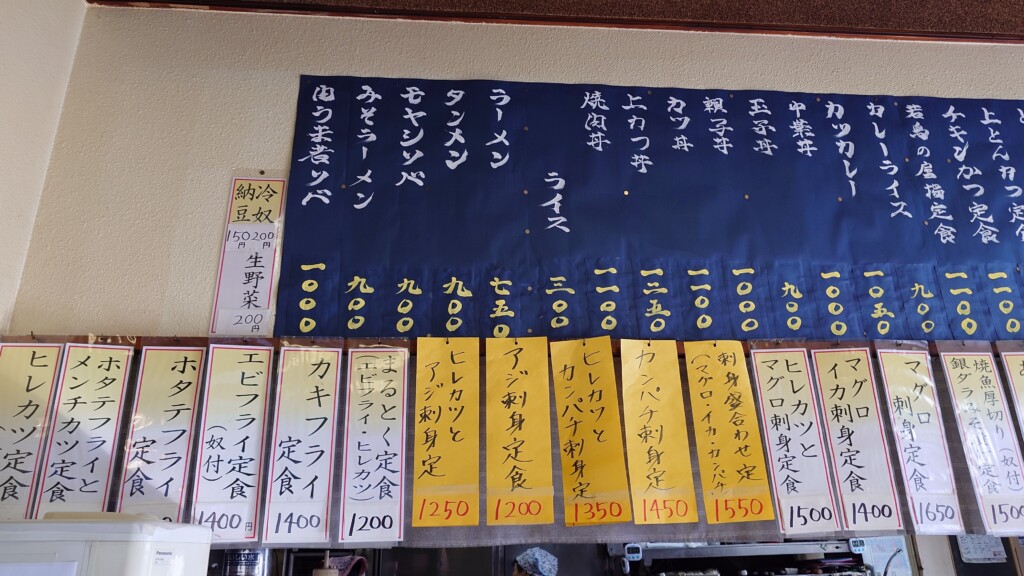 上とんかつ定食
チキンかつ定食
若鳥の唐揚定食
カレーライス
カツカレー
中華丼
玉子丼
親子丼
カツ丼
上かつ丼
焼肉丼
ライス
ラーメン
タンメン
モヤシソバ
みそラーメン
一一〇〇
一一〇〇
九〇〇
一〇五〇
一〇〇〇
九〇〇
一〇〇〇
一一〇〇
一二五〇
一一〇〇
三〇〇
七五〇
九〇〇
九〇〇
九〇〇
一〇〇〇
冷奴
200円
納豆
150円
生野菜
200円
焼魚厚切り(奴付)
1500
マグロ
刺身定食
1650
マグロ
イカ刺身定食
1400
ヒレカツと
マグロ刺身定食
1500
刺身盛合わせ定
(マグロ・イカ・カンパチ
1550
カンパチ刺身定
1450
ヒレカツと
カンパチ刺身定
1350
アジ刺身定食
1200
ヒレカツと
アジ刺身定
1250
まるとく定食
(エビフライ・ヒレカツ)
1200
カキフライ
定食
1400
エビフライ定食
(奴付)
1400円
ホタテフライ
定食
ホタテフライと
メンチカツ定食
ヒレカツ定食
Panasonic